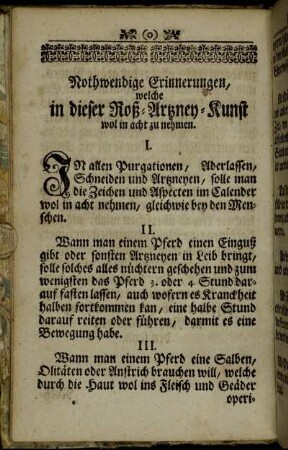 (0)
Nothwendige Erinnerungen,
welche
in dieser Roß-Artzney-Kunst
wol in acht zu nehmen.
I.
IN allen Purgationen, Aderlassen,
Schneiden und Artzneyen, solle man
die Zeichen und Aspecten im Calender
wol in acht nehmen, gleichwie bey den Men-
schen.
II.
Wann man einem Pferd einen Einguß
gibt oder sonsten Artzneyen in Leib bringt,
solle solches alles nüchtern geschehen und zum
wenigsten das Pferd 3. oder 4 Stund dar-
auf fasten lassen, auch wofern es Kranckheit
halben fortkommen kan, eine halbe Stund
darauf reiten oder führen, darmit es eine
Bewegung habe.
III.
Wann man einem Pferd eine Salben,
Olitäten oder Anstrich brauchen will, welche
durch die Haut wol ins Fleisch und Geäder
operi-